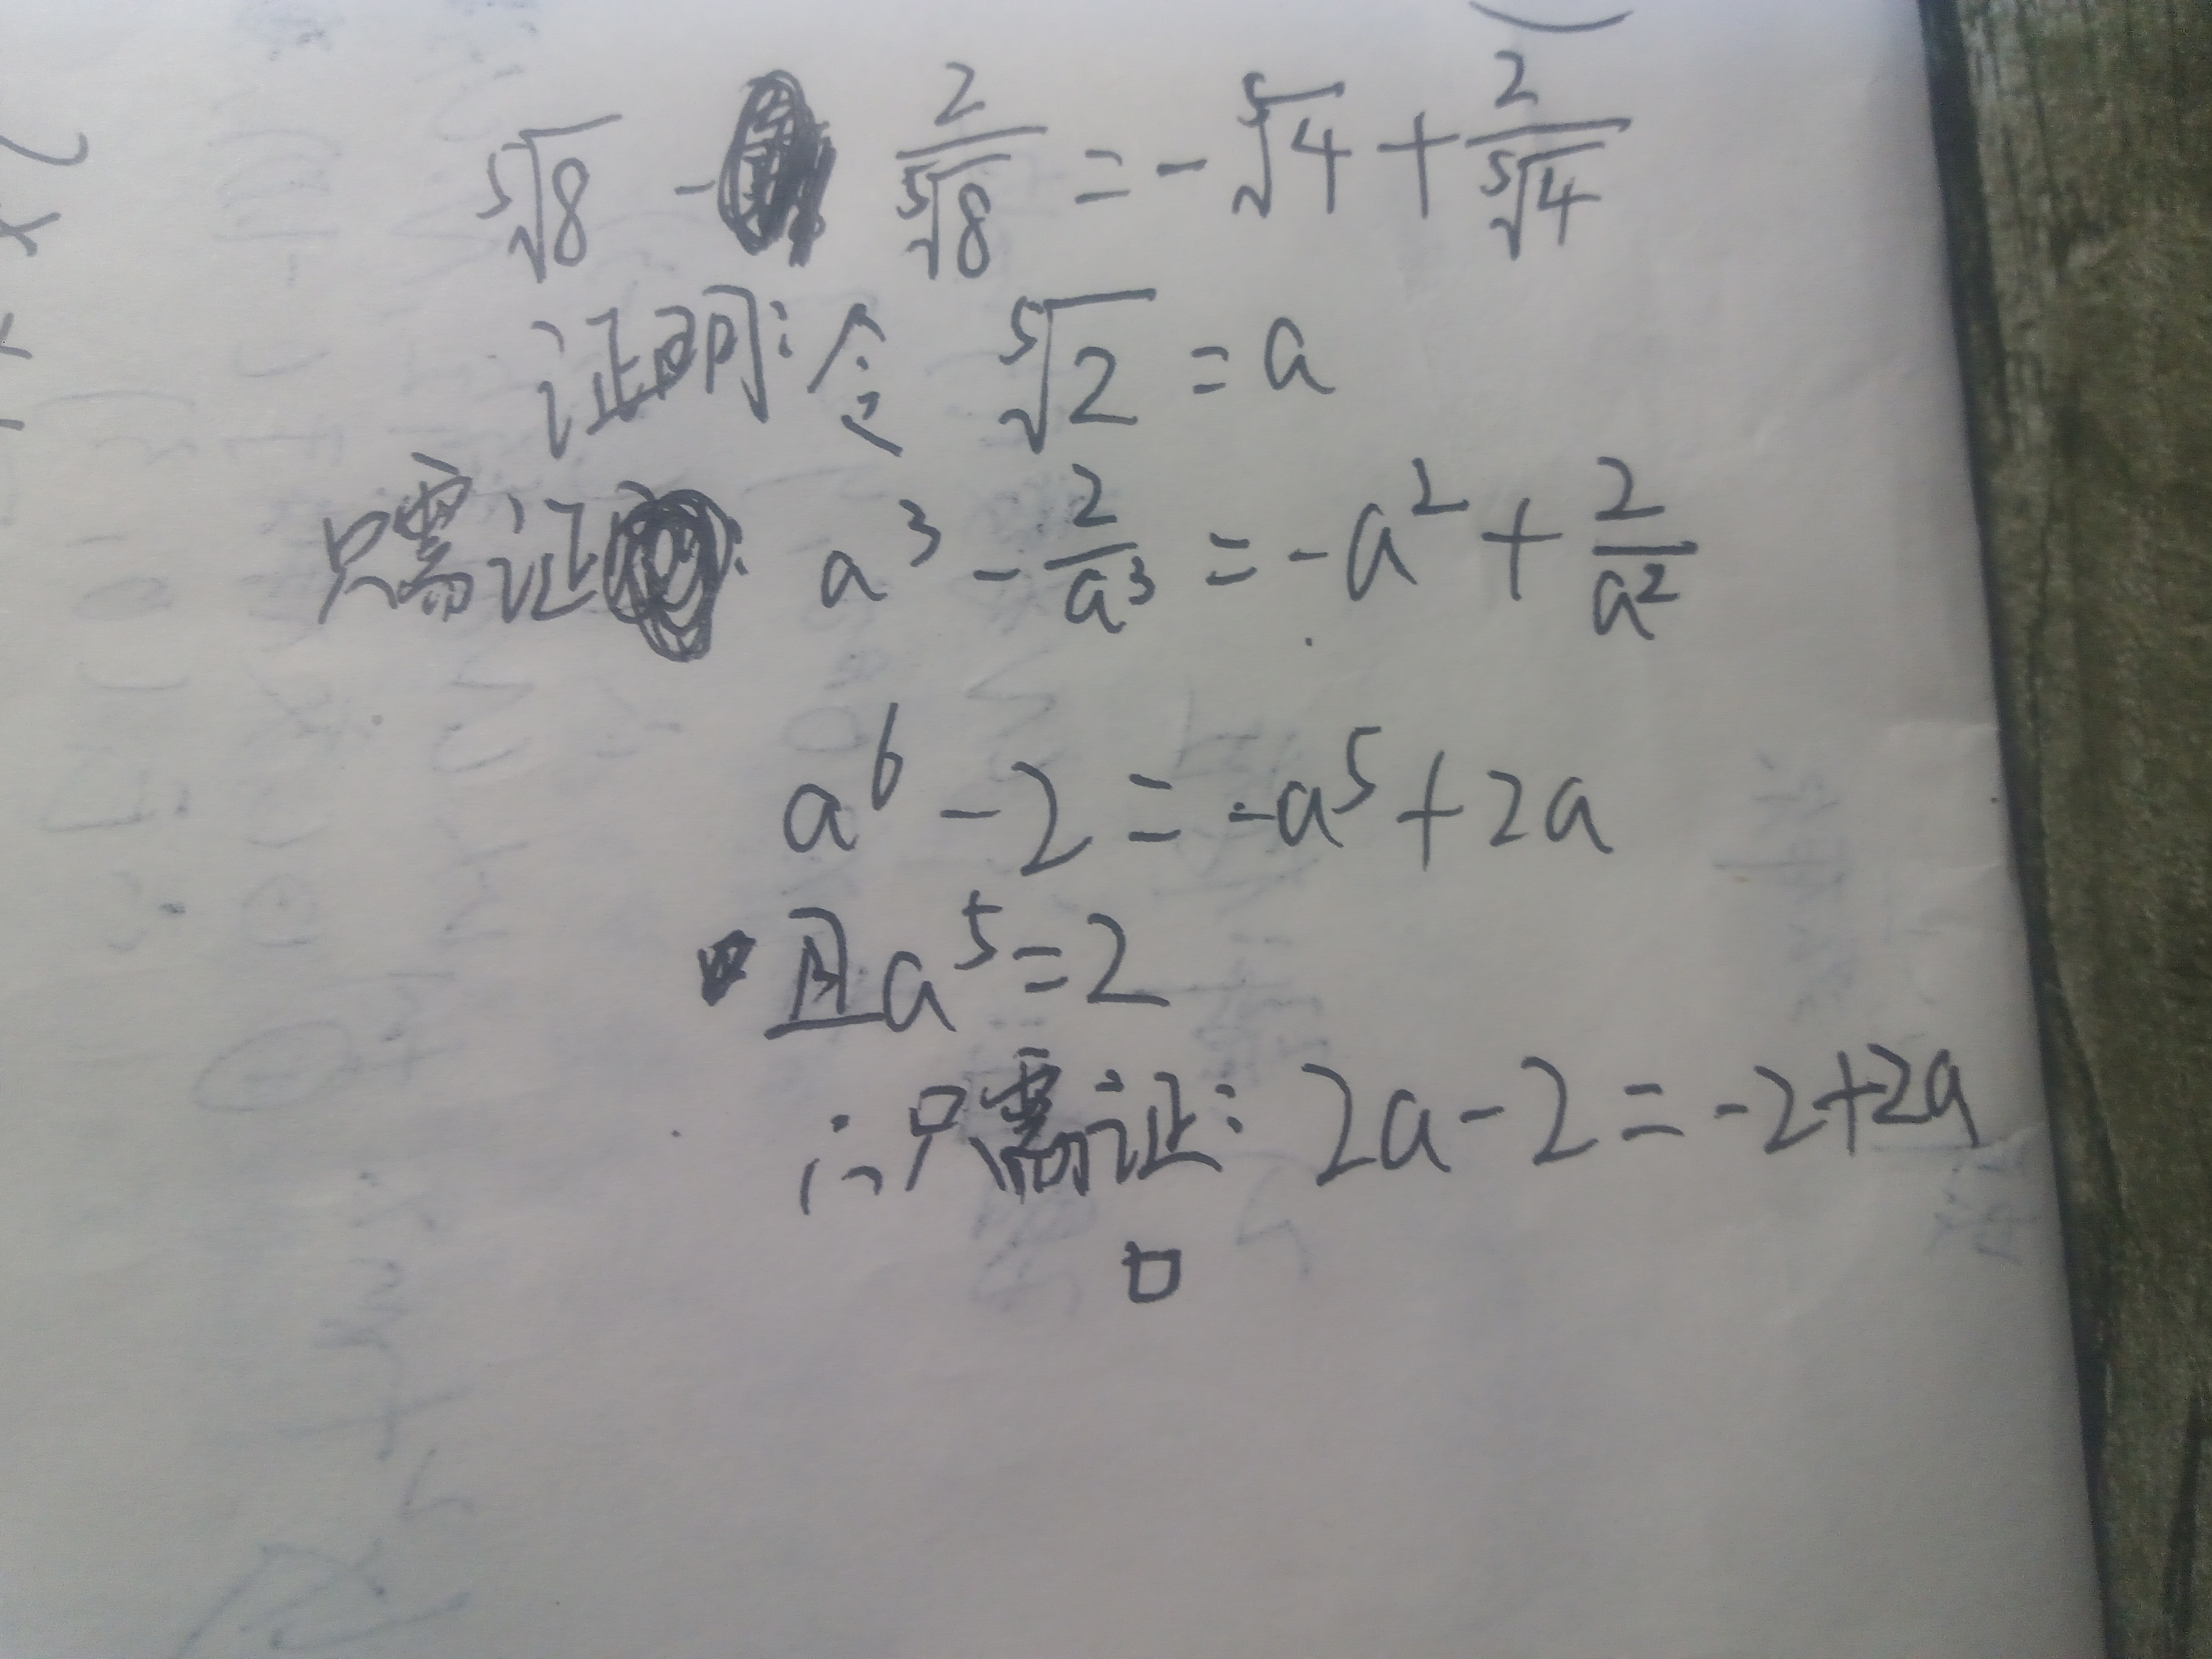 ⁵√8 - 2/⁵√8 = - ⁵√4 + 2/⁵√4
证明: 令 ⁵√2 = a
只需证: a³ - 2/a³ = -a² + 2/a²
a⁶ - 2 = -a⁵ + 2a
且a⁵=2
∴只需证: 2a-2=-2+2a
□